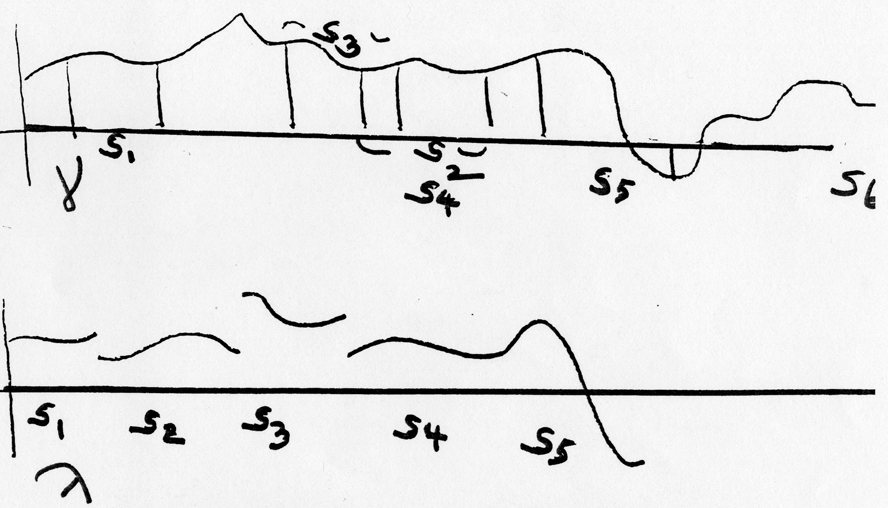 S3
S1 S2
γ S4 S5 S6
S1 S2 S3 S4 S5
λ